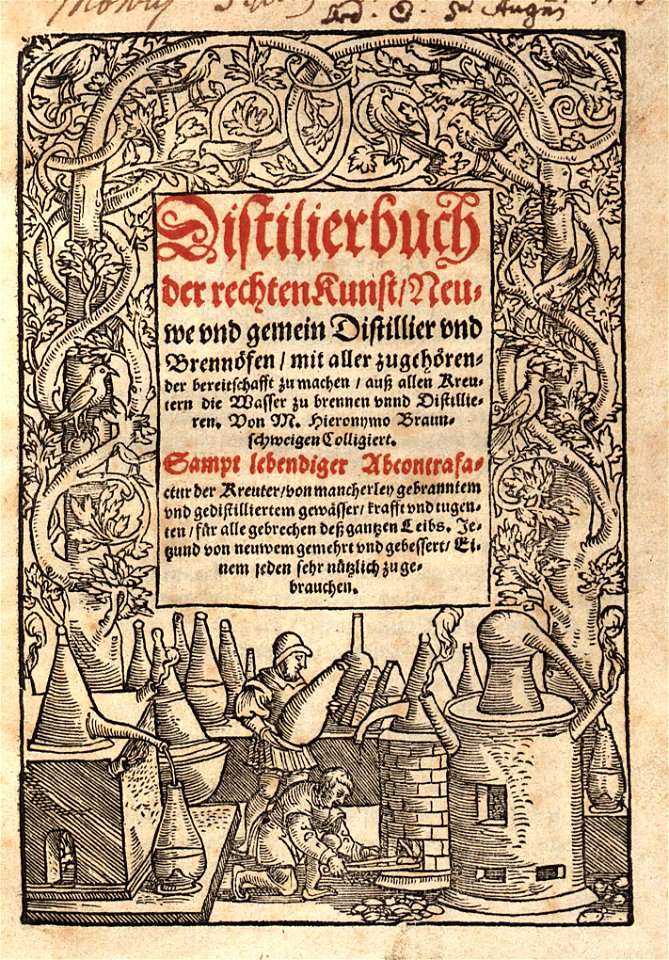 Distilierbuch
der rechten Kunst/Neu-
we vnd gemein Distillier vnd
Brennöfen / mit aller zugehören-
der bereitschafft zu machen / auß allen Kreu-
tern die Wasser zu brennen vnnd Distillie-
ren. Von M. Hieronymo Braun-
schweigen Colligiert.
Sampt lebendiger Abcontrafa-
ctur der Kreuter/von mancherley gebranntem
vnd gedistilliertem gewässer/ krafft vnd tugen-
ten / für alle gebrechen deß gantzen Leibs. Je-
tzund von neuwem gemehrt vnd gebessert/ Ei-
nem jeden sehr nützlich zu ge-
brauchen.